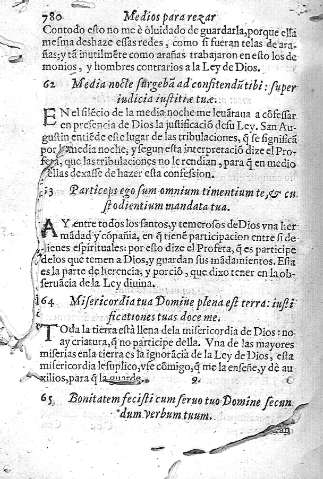 780 Medios para rezar
Con todo esto no me è oluidado de guardarla, porque essa
mesma deshaze essas redes, como si fueran telas de ara-
ñas; y tã inutilmẽte como arañas trabajaron en esto los de-
monios, y hombres contrarios a la Ley de Dios.
62 Media nocte surgebã ad confitendũ tibi: super
iudicia iustitiæ tuæ.
EN el silẽcio de la media noche me leuãtaua a cõfessar
en presencia de Dios la justificaciõ de su Ley. San Au-
gustin entiẽde este lugar de las tribulaciones, q̃ se significã
por media noche, y segun esta interpretaciõ dize el Pro-
feta, que las tribulaciones no le rendian, para q̃ en medio
ellas dexasse de hazer esta confession.
63 Particeps ego sum omnium timentium te, & cu
stodientium mandata tua.
AY entre todos los santos, y temerosos de Dios vna her
mãdad y cõpañia, en q̃ tiene participacion entre si de
bienes espirituales: por esto dize el Profeta, q̃ es participe
de los que temen a Dios, y guardan sus mãdamientos. Esta
es la parte de herencia, y porciõ, que dixo tener en la ob-
seruãcia de la Ley diuina.
164 Misericordia tua Domine plena est terra: iusti
ficationes tuas doce me.
TOda la tierra està llena de la misericordia de Dios: no
ay criatura, q̃ no participe della. Vna de las mayores
miserias en la tierra es la ignorãcia de la Ley de Dios, esta
misericordia le suplico, vse cõmigo, q̃ me la enseñe, y dè au
xilios, para q̃ la guarde.
65 Bonitatem fecisti cum seruo tuo Domine secun
dum verbum tuum.